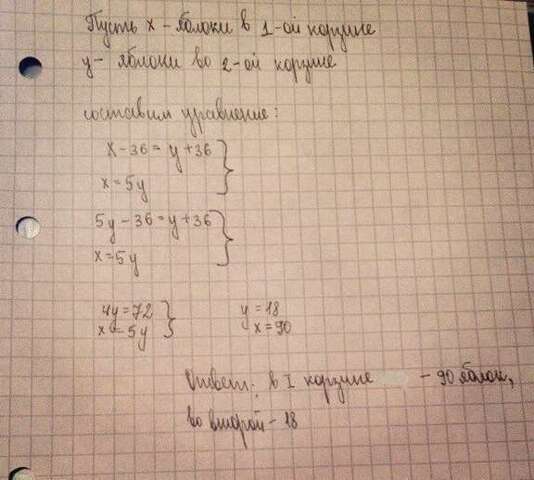 Пусть x - яблоки в 1-ой корзине
y - яблоки во 2-ой корзине
составим уравнение:
x - 36 = y + 36 }
x = 5y
5y - 36 = y + 36 }
x = 5y
4y = 72 } y = 18
x = 5y x = 90
Ответ: в I корзине - 90 яблок,
во второй - 18